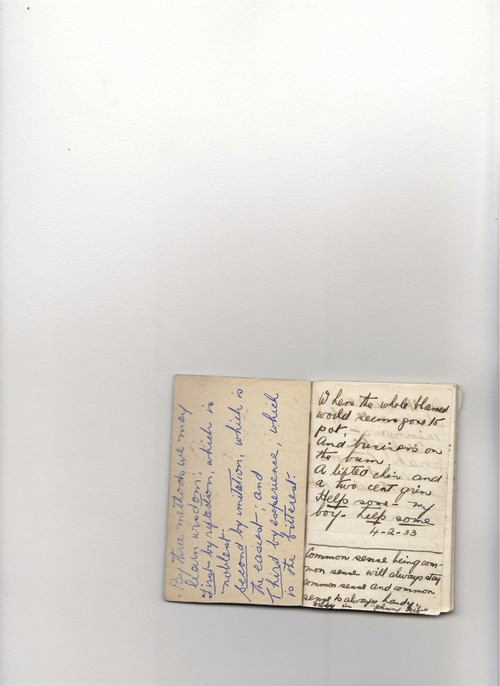 By three methods we may
learn wisdom:
First - by reflection, which is
noblest.
Second by imitation, which is
the easiest; and
Third by experience, which
is the bitterest.
When the whole blamed
world seems gone to
pot,
And business on
the bum.
A lifted chin and
a two cent grin
Help some - my
boy - help some
4-2-33
Common sense being com-
mon sense will always stay
common sense and common
sense is always handy.